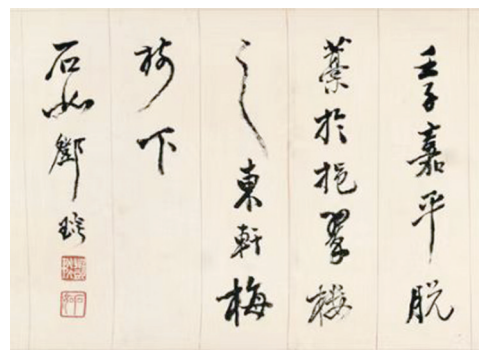 壬子嘉平脱
藁於挹翠楼
之東軒梅
树下
石如鄧琰